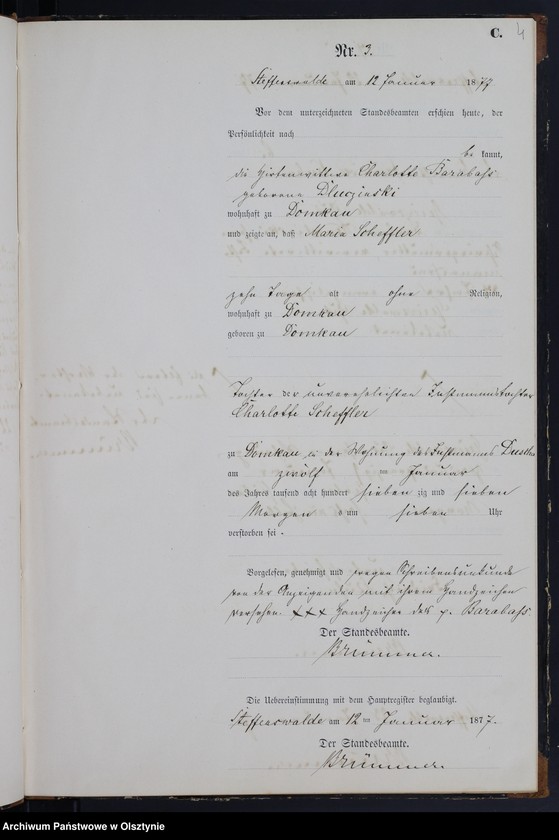 C.
4
Nr. 3.
Steffenswalde am 12 Januar 1877
Vor dem unterzeichneten Standesbeamten erschien heute, der
Persönlichkeit nach
be kannt,
die Hirtenwittwe Charlotte Barabass
geborene Dluczinski
wohnhaft zu Domkau
und zeigte an, daß Marie Scheffler
zehn Tage alt ohne Religion,
wohnhaft zu Domkau
geboren zu Domkau
Tochter der unverehelichten Instmannstochter
Charlotte Scheffler
zu Domkau in der Wohnung des Instmanns
am zwölf ten Januar
des Jahres tausend acht hundert sieben zig und sieben
Morgens um sieben Uhr
verstorben sei.
Vorgelesen, genehmigt und wegen Schreibensunkunde
von der Anzeigenden mit ihrem Handzeichen
versehen. +++ Handzeichen der p. Barabass
Der Standesbeamte.
Brümmer.
Die Uebereinstimmung mit dem Hauptregister beglaubigt.
Steffenswalde am 12 ten Januar 1877.
Der Standesbeamte.
Brümmer.
Archiwum Państwowe w Olsztynie